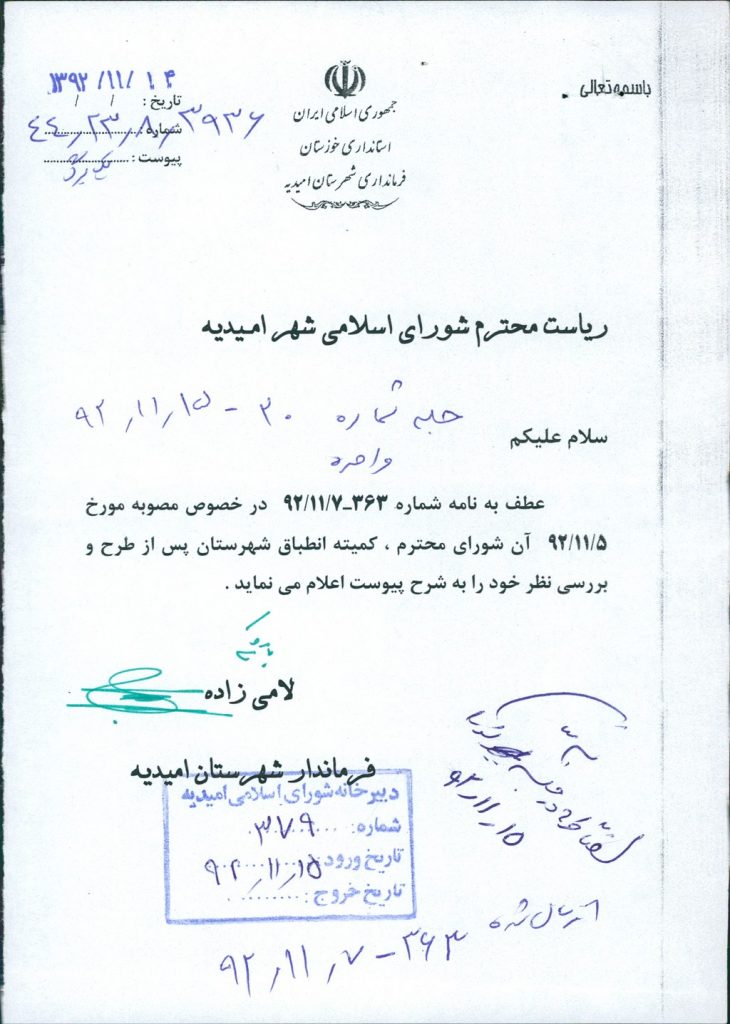 باسمه تعالی
جمهوری اسلامی ایران
استانداری خوزستان
فرمانداری شهرستان امیدیه
۱۳۹۲/۱۱/۱۴
تاریخ : / /
شماره : ۴۴/۲۳/۸/۳۹۳۶
پیوست : یک برگ
ریاست محترم شورای اسلامی شهر امیدیه
جلسه شماره ۳۰ - ۹۲/۱۱/۱۵
سلام علیکم
عطف به نامه شماره ۳۶۳-۹۲/۱۱/۷ در خصوص مصوبه مورخ
۹۲/۱۱/۵ آن شورای محترم ، کمیته انطباق شهرستان پس از طرح و
بررسی نظر خود را به شرح پیوست اعلام می نماید .
لامی زاده
فرماندار شهرستان امیدیه
دبیرخانه شورای اسلامی امیدیه
شماره: ۳۷۹
تاریخ ورود: ۹۲/۱۱/۱۵
تاریخ خروج :
در جلسه
۹۲/۱۱/۱۵
ارسال شده
۳۶۳ - ۹۲/۱۱/۷